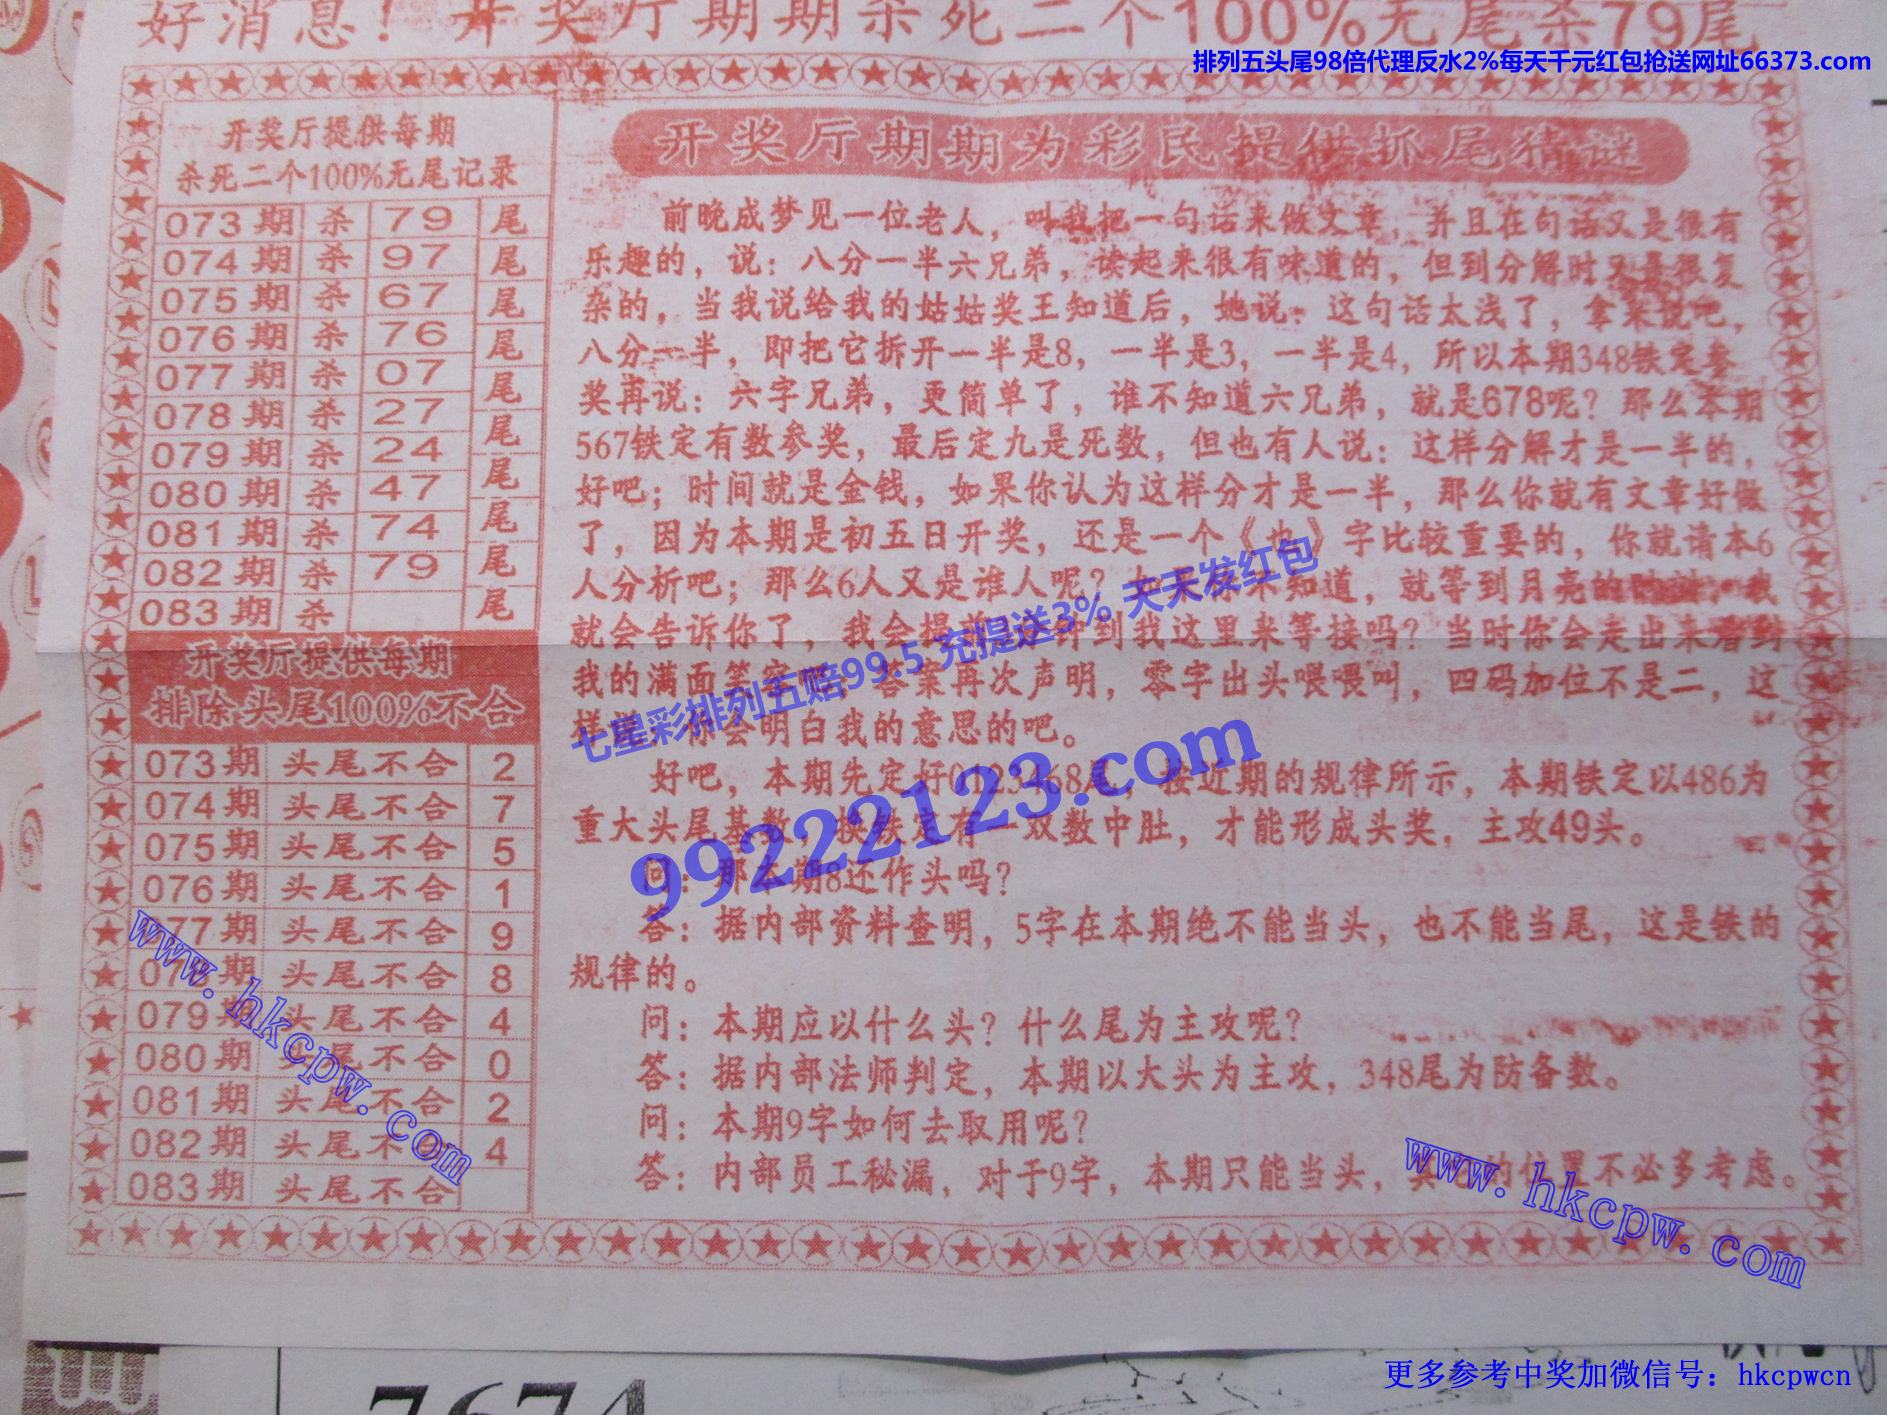 好消息！开奖厅期期杀死二个100%无尾杀79尾
排列五头尾98倍代理反水2%每天千元红包抢送网址66373.com
开奖厅提供每期
杀死二个100%无尾记录
073期 杀 79 尾
074期 杀 97 尾
075期 杀 67 尾
076期 杀 76 尾
077期 杀 07 尾
078期 杀 27 尾
079期 杀 24 尾
080期 杀 47 尾
081期 杀 74 尾
082期 杀 79 尾
083期 杀 尾
开奖厅提供每期
排除头尾100%不合
073期 头尾不合 2
074期 头尾不合 7
075期 头尾不合 5
076期 头尾不合 1
077期 头尾不合 9
078期 头尾不合 8
079期 头尾不合 4
080期 头尾不合 0
081期 头尾不合 2
082期 头尾不合 4
083期 头尾不合
开奖厅期期为彩民提供抓尾猜谜
前晚成梦见一位老人，叫我把一句话来做文章，并且在句话又是很有
乐趣的，说：八分一半六兄弟，读起来很有味道的，但到分解时又是很复
杂的，当我说给我的姑姑奖王知道后，她说：这句话太浅了，拿来说吧，
八分一半，即把它拆开一半是8，一半是3，一半是4，所以本期348铁定参
奖再说：六字兄弟，更简单了，谁不知道六兄弟，就是678呢？那么本期
567铁定有数参奖，最后定九是死数，但也有人说：这样分解才是一半的，
好吧；时间就是金钱，如果你认为这样分才是一半，那么你就有文章好做
了，因为本期是初五日开奖，还是一个《也》字比较重要的，你就请本6
人分析吧；那么6人又是谁人呢？如果你不知道，就等到月亮的，我
就会告诉你了，我会提前到我这里来等接吗？当时你会走出来看到
我的满面笑容 答案再次声明，零字出头喂喂叫，四码加位不是二，这
样说，你会明白我的意思的吧。
好吧，本期先定好0123468尾，按近期的规律所示，本期铁定以486为
重大头尾基数，换铁定有一双数中肚，才能形成头奖，主攻49头。
问：那本期8还作头吗？
答：据内部资料查明，5字在本期绝不能当头，也不能当尾，这是铁的
规律的。
问：本期应以什么头？什么尾为主攻呢？
答：据内部法师判定，本期以大头为主攻，348尾为防备数。
问：本期9字如何去取用呢？
答：内部员工秘漏，对于9字，本期只能当头，其的位置不必多考虑。
七星彩排列五赔99.5 充提送3% 天天发红包
99222123.com
www.hkcpw.com
www.hkcpw.com
7674
更多参考中奖加微信号：hkcpwcn